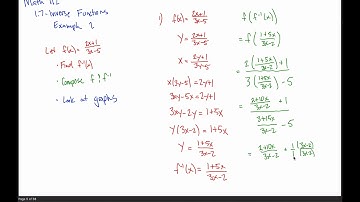 Math 112
1.7 - Inverse Functions
Example 2
Let f(x) = (2x+1)/(3x-5)
• Find f⁻¹(x)
• Compose f & f⁻¹
• Look at graphs
1) f(x) = (2x+1)/(3x-5)
y = (2x+1)/(3x-5)
x = (2y+1)/(3y-5)
x(3y-5) = 2y+1
3xy - 5x = 2y+1
3xy - 2y = 1+5x
y(3x-2) = 1+5x
y = (1+5x)/(3x-2)
f⁻¹(x) = (1+5x)/(3x-2)
f(f⁻¹(x))
= f((1+5x)/(3x-2))
= (2((1+5x)/(3x-2)) + 1)/(3((1+5x)/(3x-2)) - 5)
= ((2+10x)/(3x-2) + 1)/((3+15x)/(3x-2) - 5)
= (2+10x)/(3x-2) + 1/1 ((3x-2)/(3x-2))